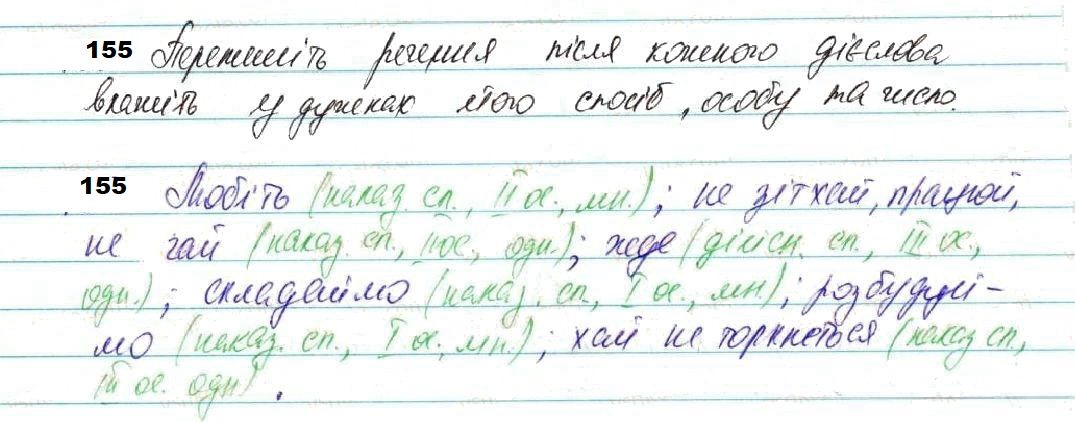 155 Перепишіть речення після кожного дієслова
вкажіть у дужках його спосіб, особу та число.
155 Любіть (наказ. сп., ІІ ос., мн.); не зітхай, працюй,
не гай (наказ. сп., ІІ ос., одн.); жде (дійсн. сп., ІІІ ос.,
одн.); складаймо (наказ. сп., І ос., мн.); розбудуй-
мо (наказ. сп., І ос., мн.); хай не торкнеться (наказ сп.,
ІІІ ос. одн).